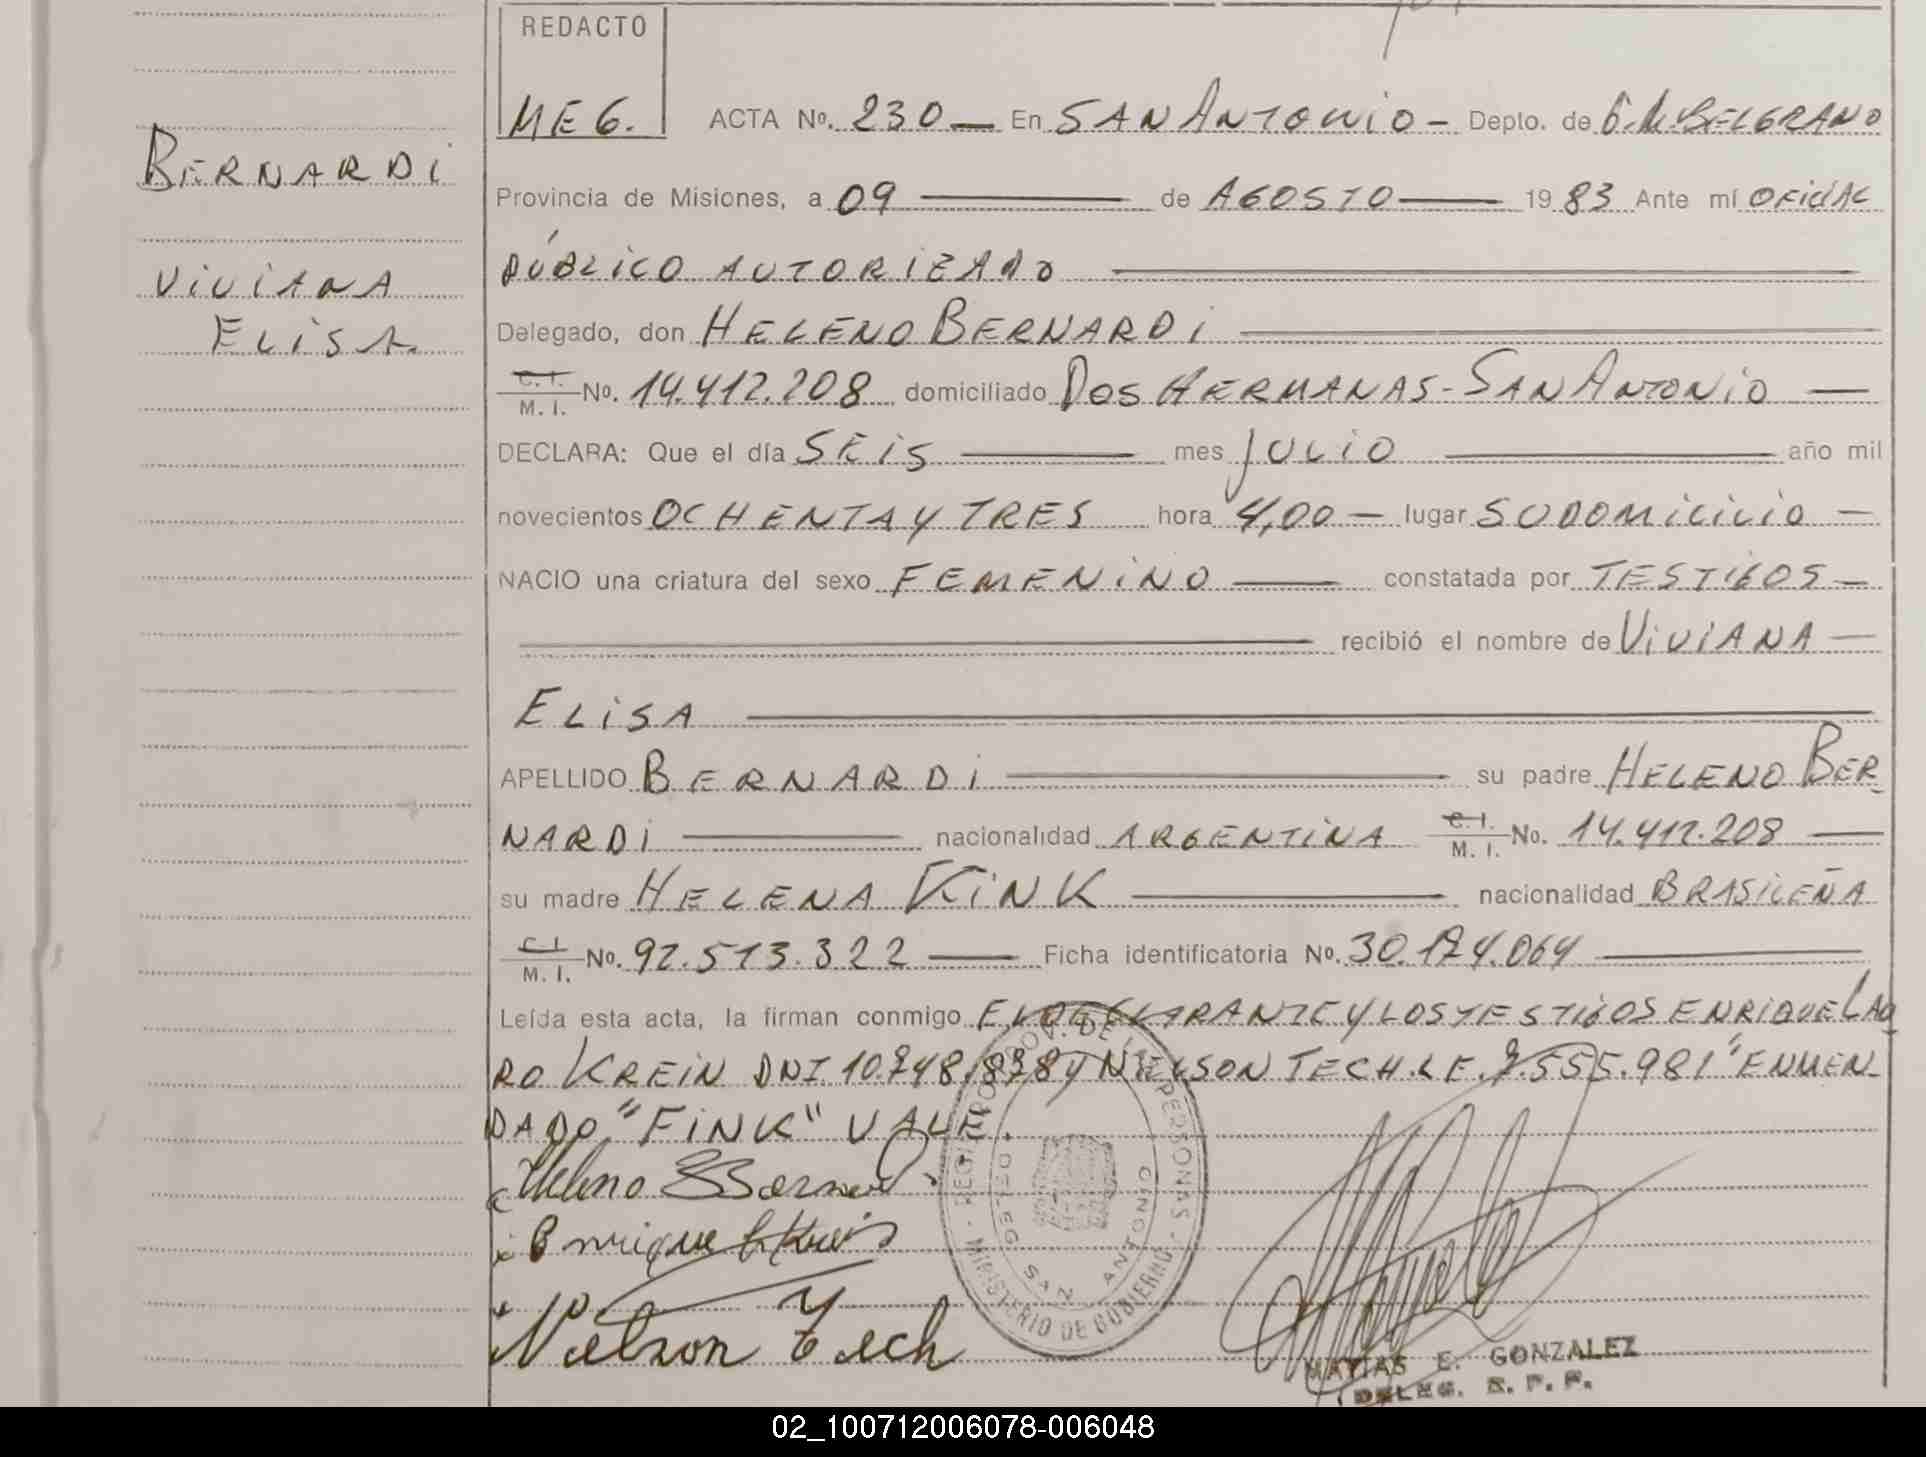 REDACTO
MEG.
ACTA No. 230 — En SAN ANTONIO - Depto. de G.M. BELGRANO
BERNARDI
Provincia de Misiones, a 09 — de AGOSTO — 19 83 Ante mí OFICIAL
PÚBLICO AUTORIZADO
VIVIANA
ELISA
Delegado, don HELENO BERNARDI
C. I. M. I. No. 14.412.208 domiciliado DOS HERMANAS - SAN ANTONIO —
DECLARA: Que el día SEIS — mes JULIO — año mil
novecientos OCHENTA Y TRES hora 4,00 — lugar SU DOMICILIO —
NACIO una criatura del sexo FEMENINO — constatada por TESTIGOS —
recibió el nombre de VIVIANA —
ELISA
APELLIDO BERNARDI — su padre HELENO BER-
NARDI — nacionalidad ARGENTINA C. I. M. I. No. 14.412.208 —
su madre HELENA FINK — nacionalidad BRASILEÑA
C. I. M. I. No. 92.513.322 — Ficha identificatoria No. 30.174.064 —
Leída esta acta, la firman conmigo EL DECLARANTE Y LOS TESTIGOS ENRIQUE LAU
RO KREIN DNI 10.748.878 y NELSON TECH. L E. 7.555.981 "ENMEN-
DADO "FINK" VALE.
Heleno Bernardi
Enrique L. Krein
Nelson Tech
REGISTRO PROV. DE PERSONAS
MINISTERIO DE GOBIERNO
DELEG SAN ANTONIO
MATIAS E. GONZALEZ
DELEG. R. P. P.
02_100712006078-006048